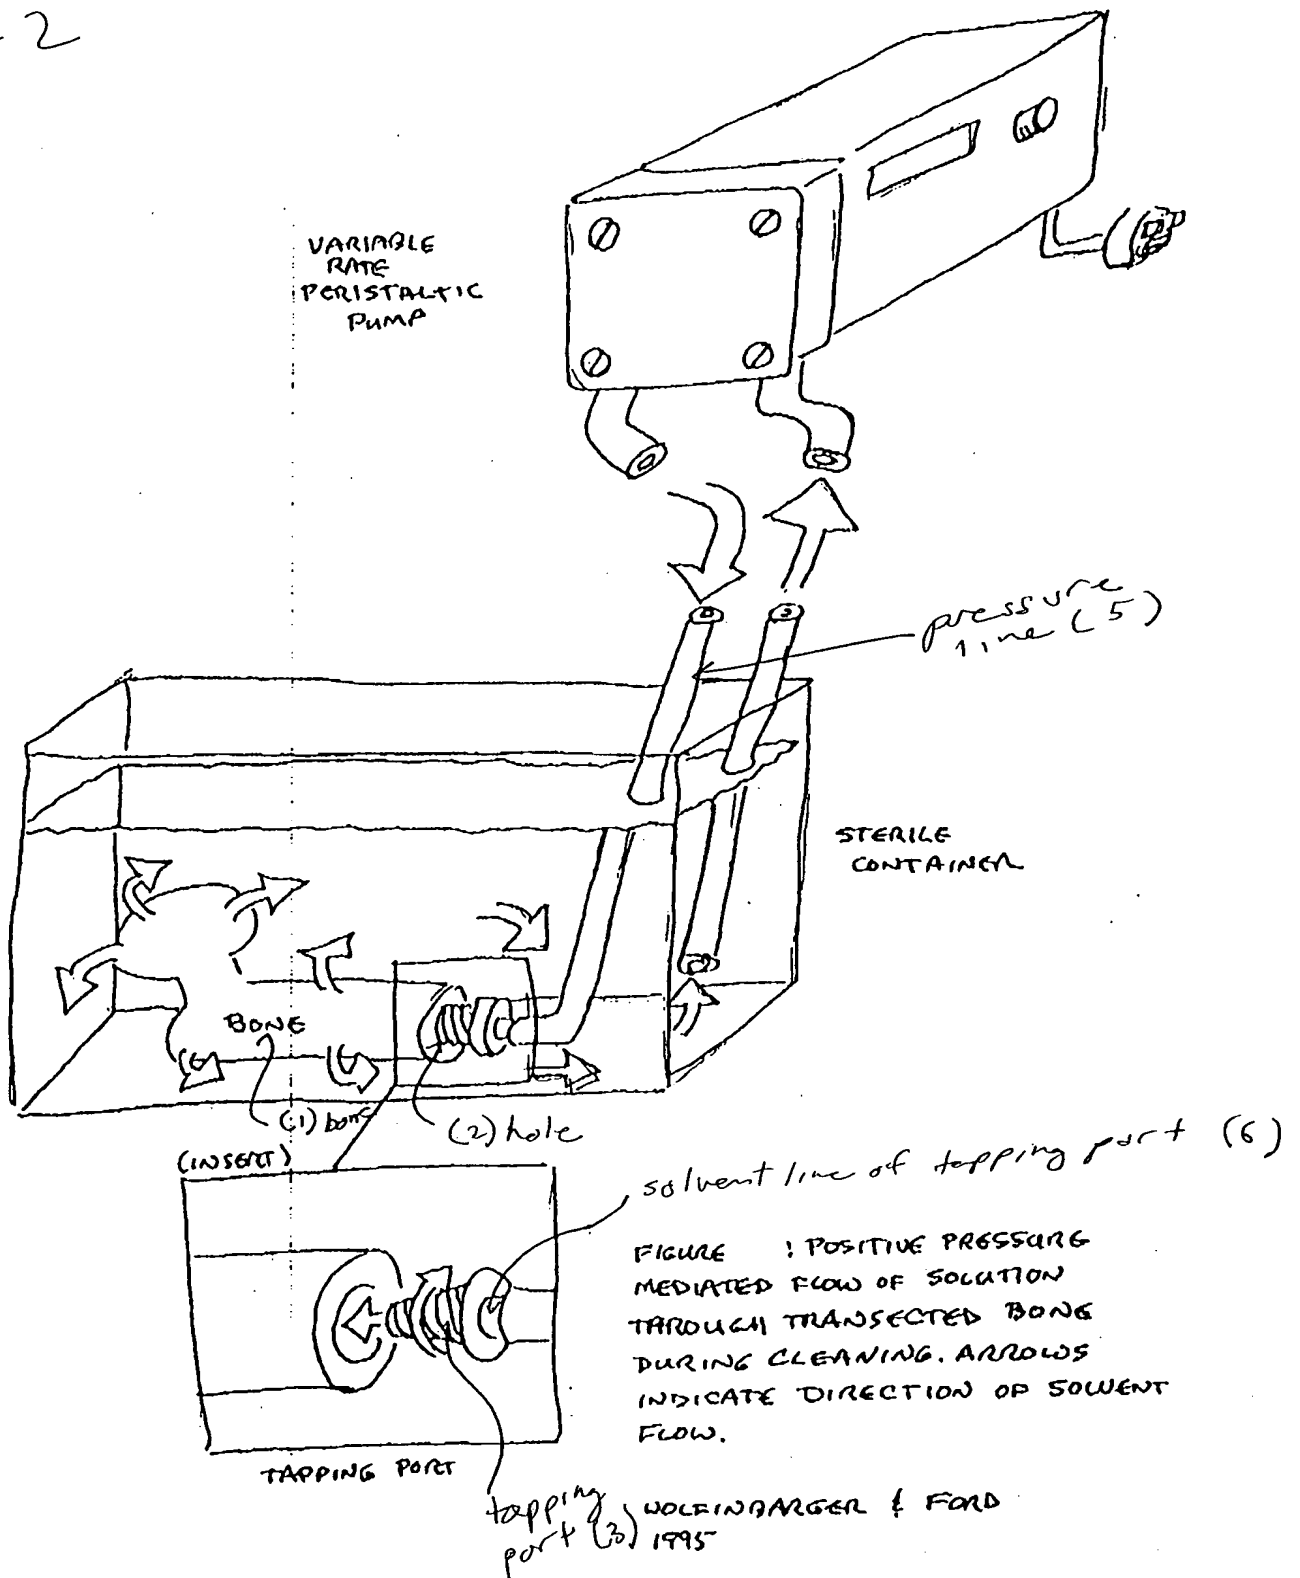 2
VARIABLE
RATE
PERISTALTIC
PUMP
pressure
line (5)
STERILE
CONTAINER
BONE
(1) bone
(2) hole
(INSERT)
solvent line of tapping port (6)
FIGURE : POSITIVE PRESSURE
MEDIATED FLOW OF SOLUTION
THROUGH TRANSECTED BONE
DURING CLEANING. ARROWS
INDICATE DIRECTION OF SOLVENT
FLOW.
TAPPING PORT
tapping
port (3)
WOLFINBARGER & FORD
1995